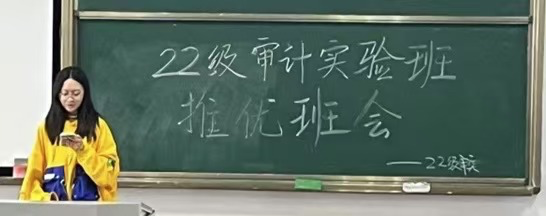 22级审计实验班
推优班会
——22级审实